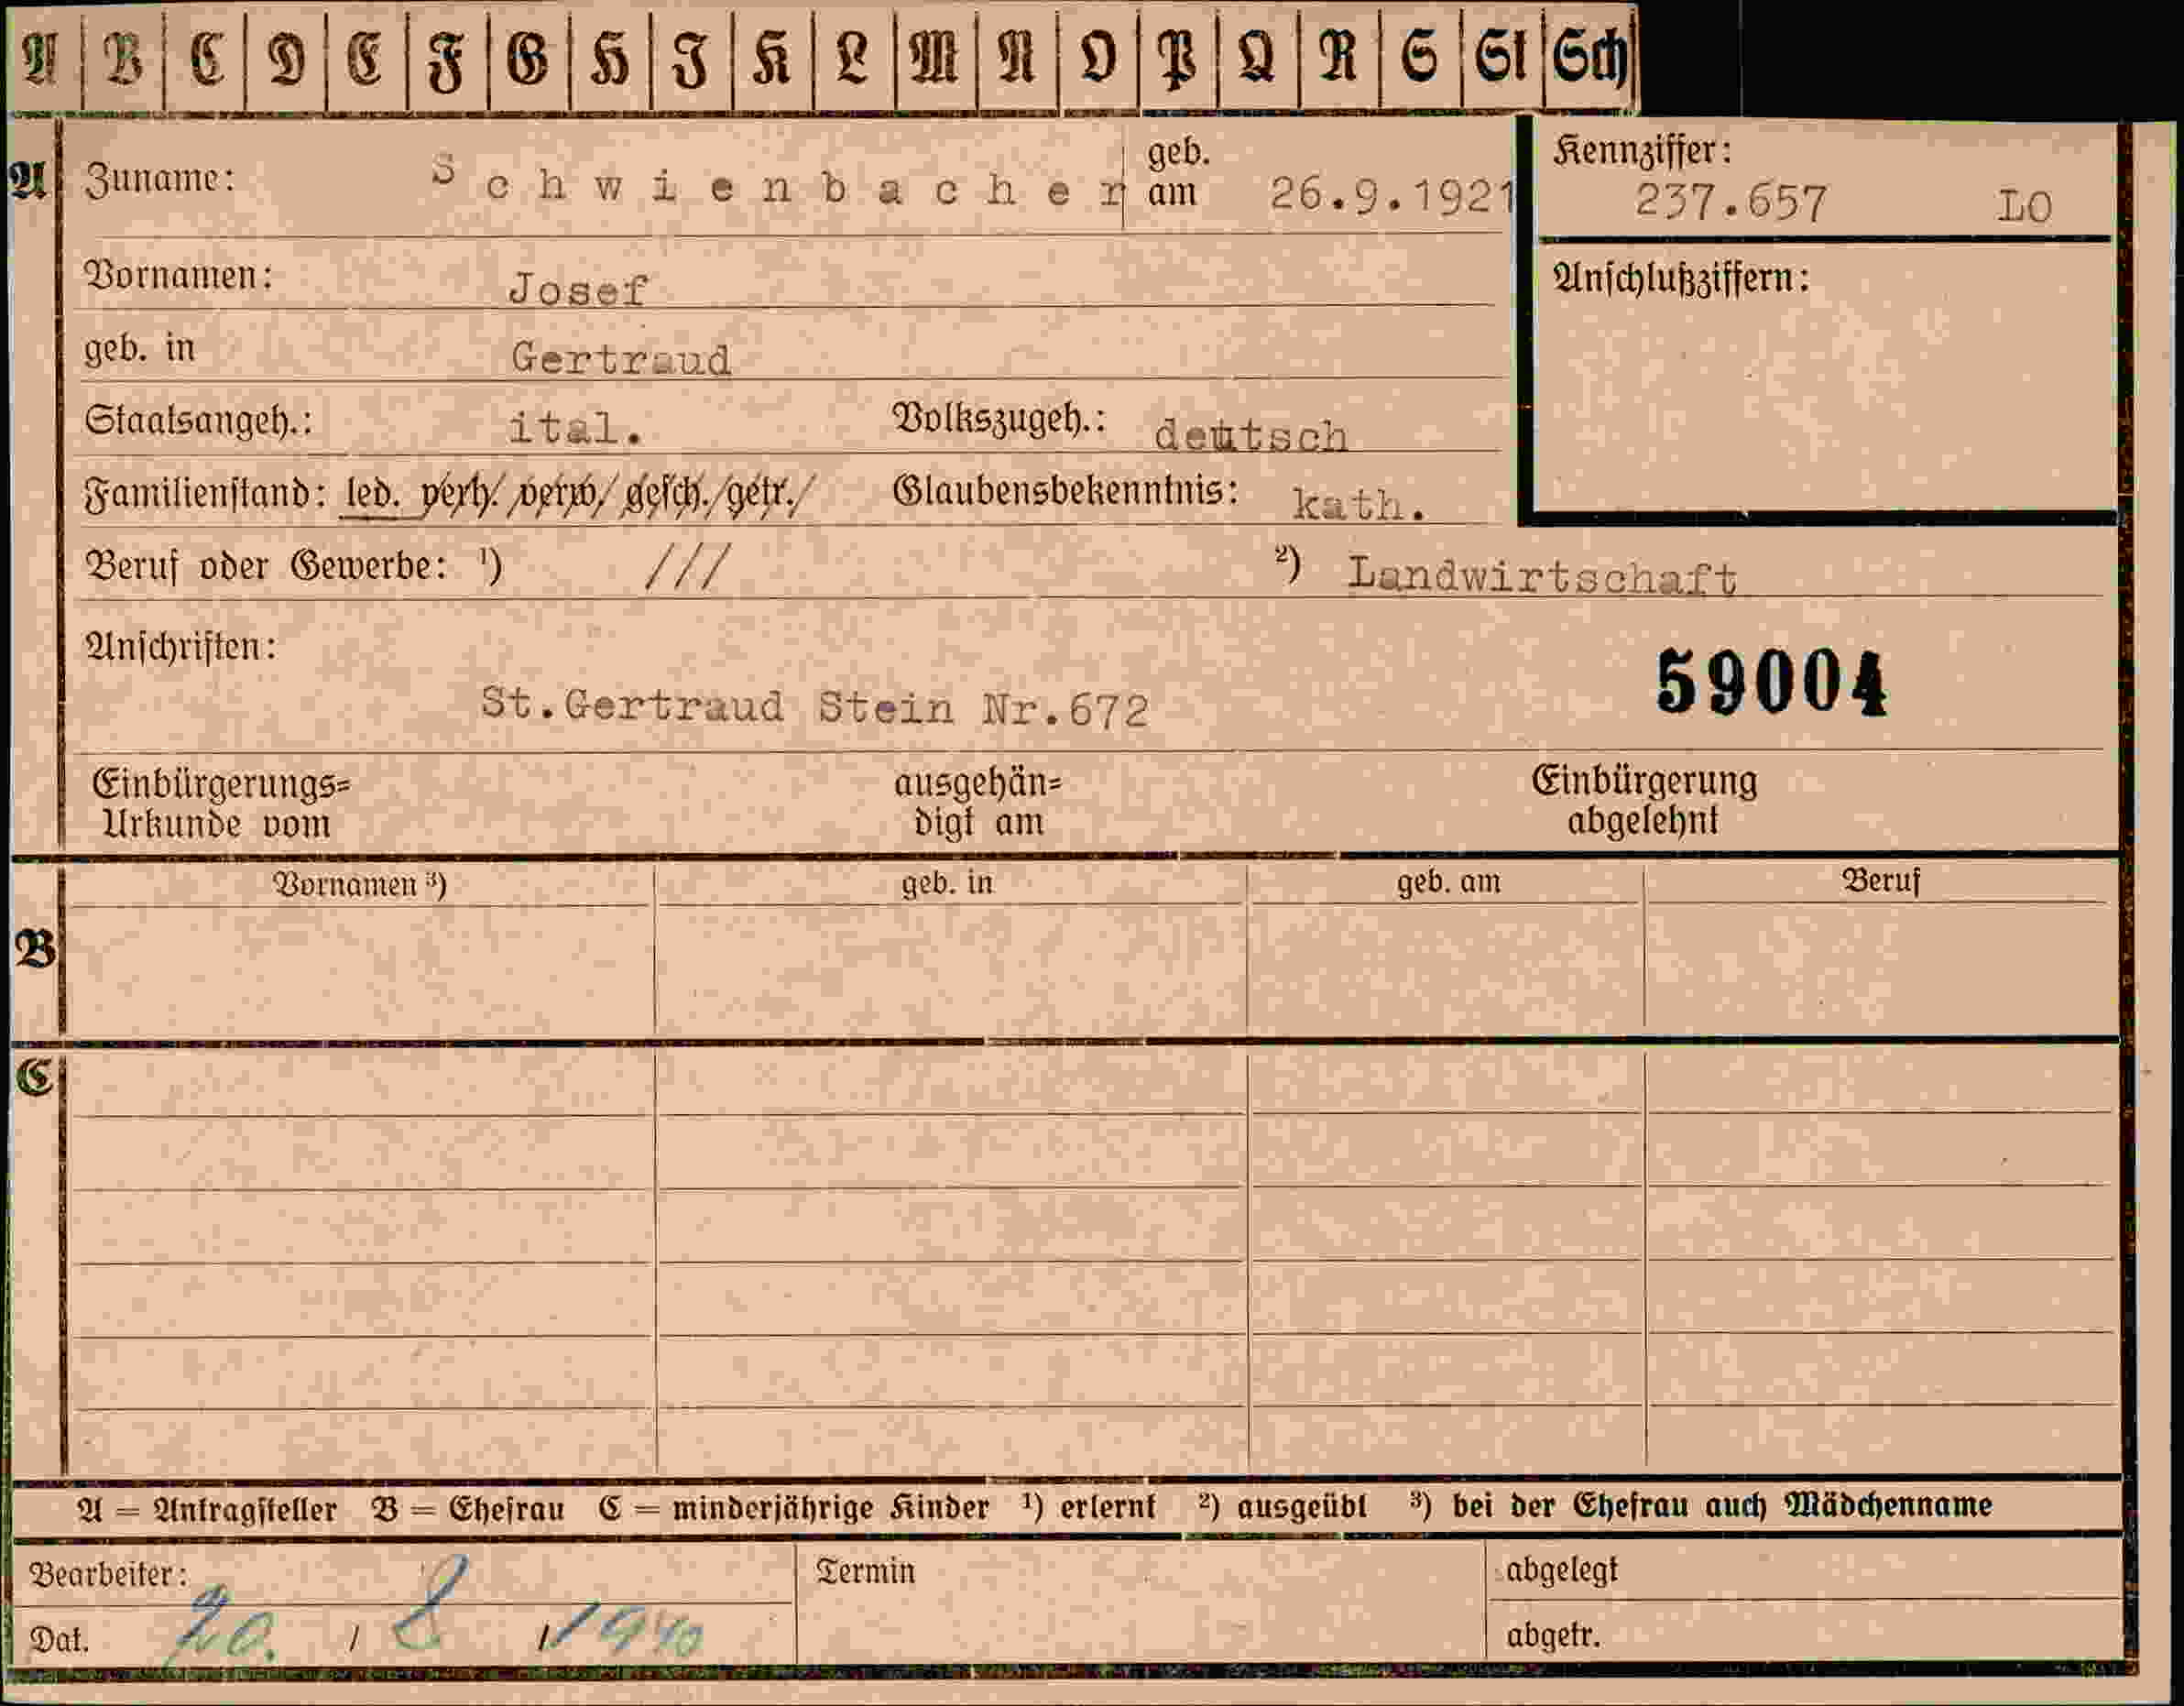 A B C D E F G H I K L M N O P Q R S St Sch
A Zuname: Schwienbacher geb. am 26.9.1921 Kennziffer: 237.657 LO
Vornamen: Josef Anschlußziffern:
geb. in Gertraud
Staatsangeh.: ital. Volkszugeh.: deutsch
Familienstand: led. verh./verw./gesch./getr./ Glaubensbekenntnis: kath.
Beruf oder Gewerbe: ¹) /// ²) Landwirtschaft
Anschriften: 59004
St.Gertraud Stein Nr.672
Einbürgerungs= ausgehän= Einbürgerung
Urkunde vom digt am abgelehnt
Vornamen ³) geb. in geb. am Beruf
B
C
A = Antragsteller B = Ehefrau C = minderjährige Kinder ¹) erlernt ²) ausgeübt ³) bei der Ehefrau auch Mädchenname
Bearbeiter: Termin abgelegt
Dat. 20. / 8 / 1940 abgetr.